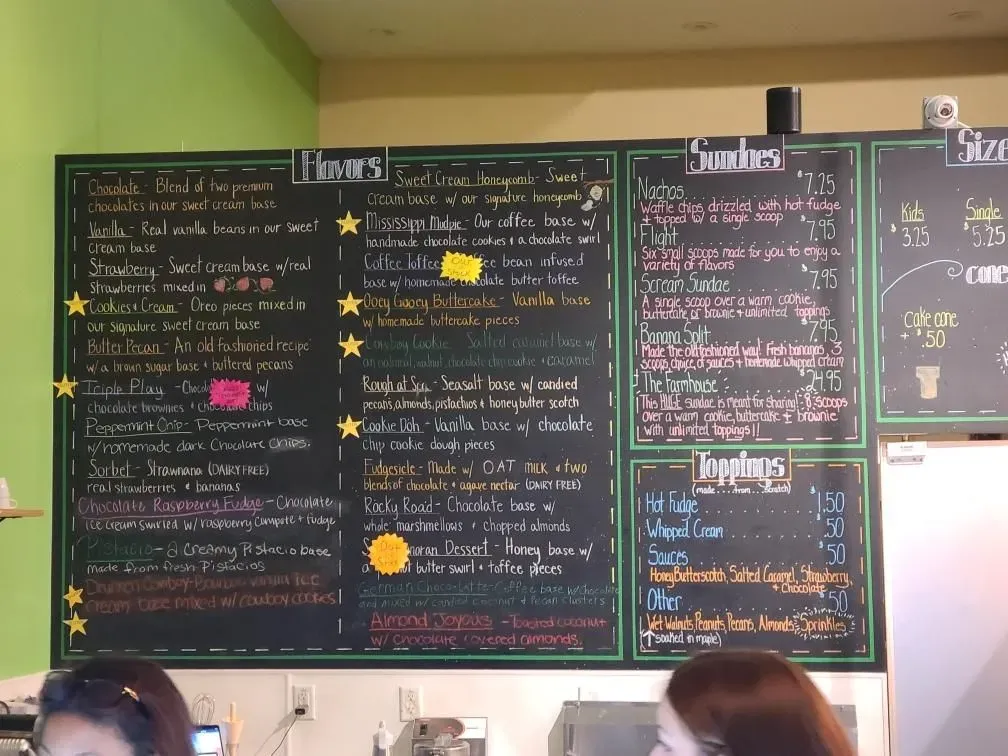 Flavors
Chocolate - Blend of two premium
chocolates in our sweet cream base
Vanilla - Real vanilla beans in our sweet
cream base
Strawberry - Sweet cream base w/real
Strawberries mixed in
Cookies & Cream - Oreo pieces mixed in
our signature sweet cream base
Butter Pecan - An old fashioned recipe
w/a brown sugar base & buttered pecans
Triple Play - w/
chocolate brownies & chocolate chips
Peppermint Chip - Peppermint base
w/homemade dark Chocolate Chips.
Sorbet - Strawnana (DAIRY FREE)
real strawberries & bananas
Chocolate Raspberry Fudge - Chocolate
ice cream swirled w/ raspberry compote + fudge
Pistacio - a creamy Pistacio base
made from fresh Pistacios
Drunken Cowboy - Bourbon vanilla ice
cream base mixed w/ cowboy cookies
Sweet Cream Honeycomb - Sweet
cream base w/ our signature honeycomb
Mississippi Mudpie - Our coffee base w/
handmade chocolate cookies & a chocolate swirl
Coffee Toffee bean infused
base w/ homemade chocolate butter toffee
Out
stock
Ooey Gooey Buttercake - Vanilla base
w/ homemade buttercake pieces
Cowboy Cookie - Salted caramel base w/
an oatmeal, walnut, chocolate chip cookie + caramel
Rough at Sea - Seasalt base w/ candied
pecans, almonds, pistachios & honey butter scotch
Cookie Doh - Vanilla base w/ chocolate
chip cookie dough pieces
Fudgesicle - Made w/ OAT MILK & two
blends of chocolate & agave nectar (DAIRY FREE)
Rocky Road - Chocolate base w/
whole marshmellows & chopped almonds
Dessert - Honey base w/
butter swirl & toffee pieces
Out
German Choco-Latte - Coffee base w/ Chocolate
and mixed w/ candied coconut & Pecan Clusters
Almond Joyous - Toasted coconut
w/ chocolate covered almonds.
Sundaes
Nachos $7.25
Waffle chips drizzled with hot fudge
+ topped by a single scoop
Flight 7.95
Six small scoops made for you to enjoy a
variety of flavors
Scream Sundae $7.95
A single scoop over a warm cookie,
buttercake or brownie + unlimited toppings
Banana Split $7.95
Made the old fashioned way! Fresh bananas, 3
scoops, choice of sauces + homemade whipped cream
The Farmhouse: $24.95
This HUGE sundae is meant for sharing! 8 scoops
over a warm cookie, buttercake + brownie
with unlimited toppings!!
Toppings
(made from scratch)
Hot Fudge $1.50
Whipped Cream .50
Sauces $.50
Honey Butterscotch, Salted Caramel, Strawberry,
+ Chocolate
Other $.50
Wet Walnuts, Peanuts, Pecans, Almonds, Sprinkles
(soaked in maple)
Size
Kids Single
$3.25 $5.25
cone
Cake cone
+ $.50